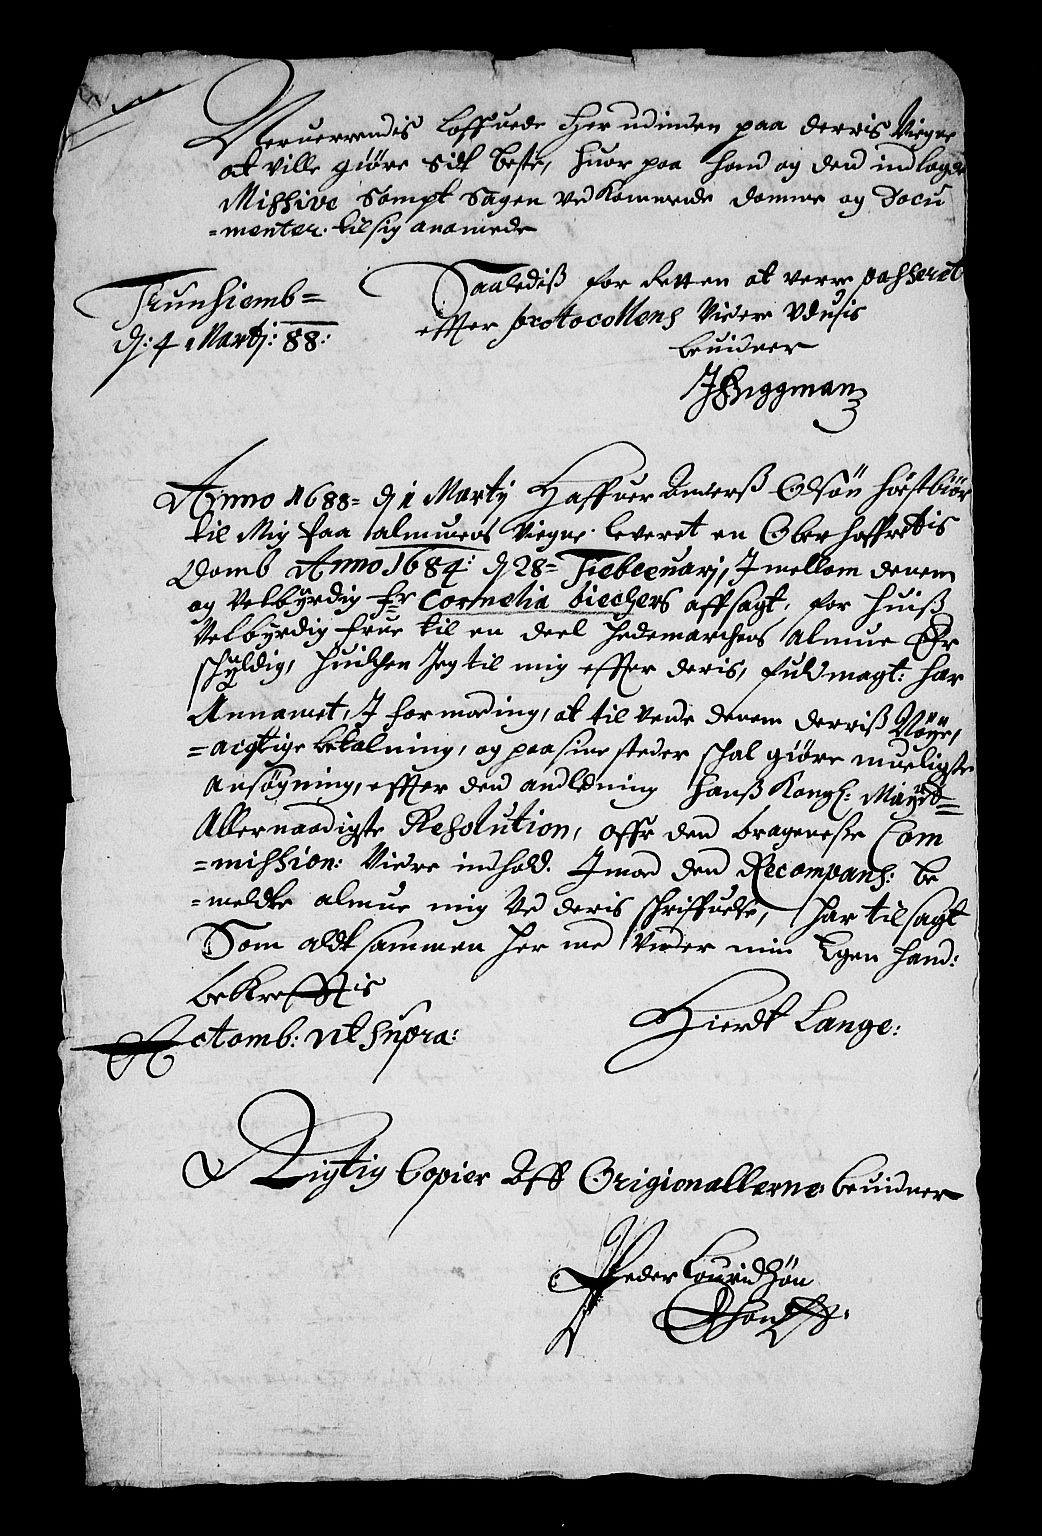 loffuede her udinden paa deris Viegne
at ville giøre Sit beste, huor paa hand og den indlagde
Missive Sampt Sagen Ved Kommende Domme og Docu
=menter. til sig anamede
Saaledis for Retten at were passeret
effter protocollens Videre Udvis
beuidner
Trunhiemb=
d: 4 Martj: 88:
Anno 1688= d 1 Martij Haffuer Anders Olsøn
til Mig paa almuens Viegne leveret en Ober hoffrettis
Domb Anno 1684: d 28= Febreuarj, Imellom denem
og Velbyrdig fr Cornelia biechers affsagt, for huis
Velbyrdig frue til en deel Hedemarchens almue Er
schyldig, huilchen Jeg til mig effter deris, fuldmagt: har
Annamet, I formoding, at til vende denem derris Nøye,
=agtige betalning, og paa sine steder schal giøre mueligste
Ansøgning, effter den andledning hans Kongl: Mayts=
Allernaadigste Resolution, offr den bragenesse Com
=mission: Videre indhold. Imod den Recompans: be
=meldte almue mig Ved deris schriffuelse, har tilsagt
Som aldt sammen her med Under min Egen hand:
bekrefftis
Actomb: Ut Supra:
Hierdt Lange:
Rigtig Copier Aff Origionallerne beuidner
Peder Louridtzøn